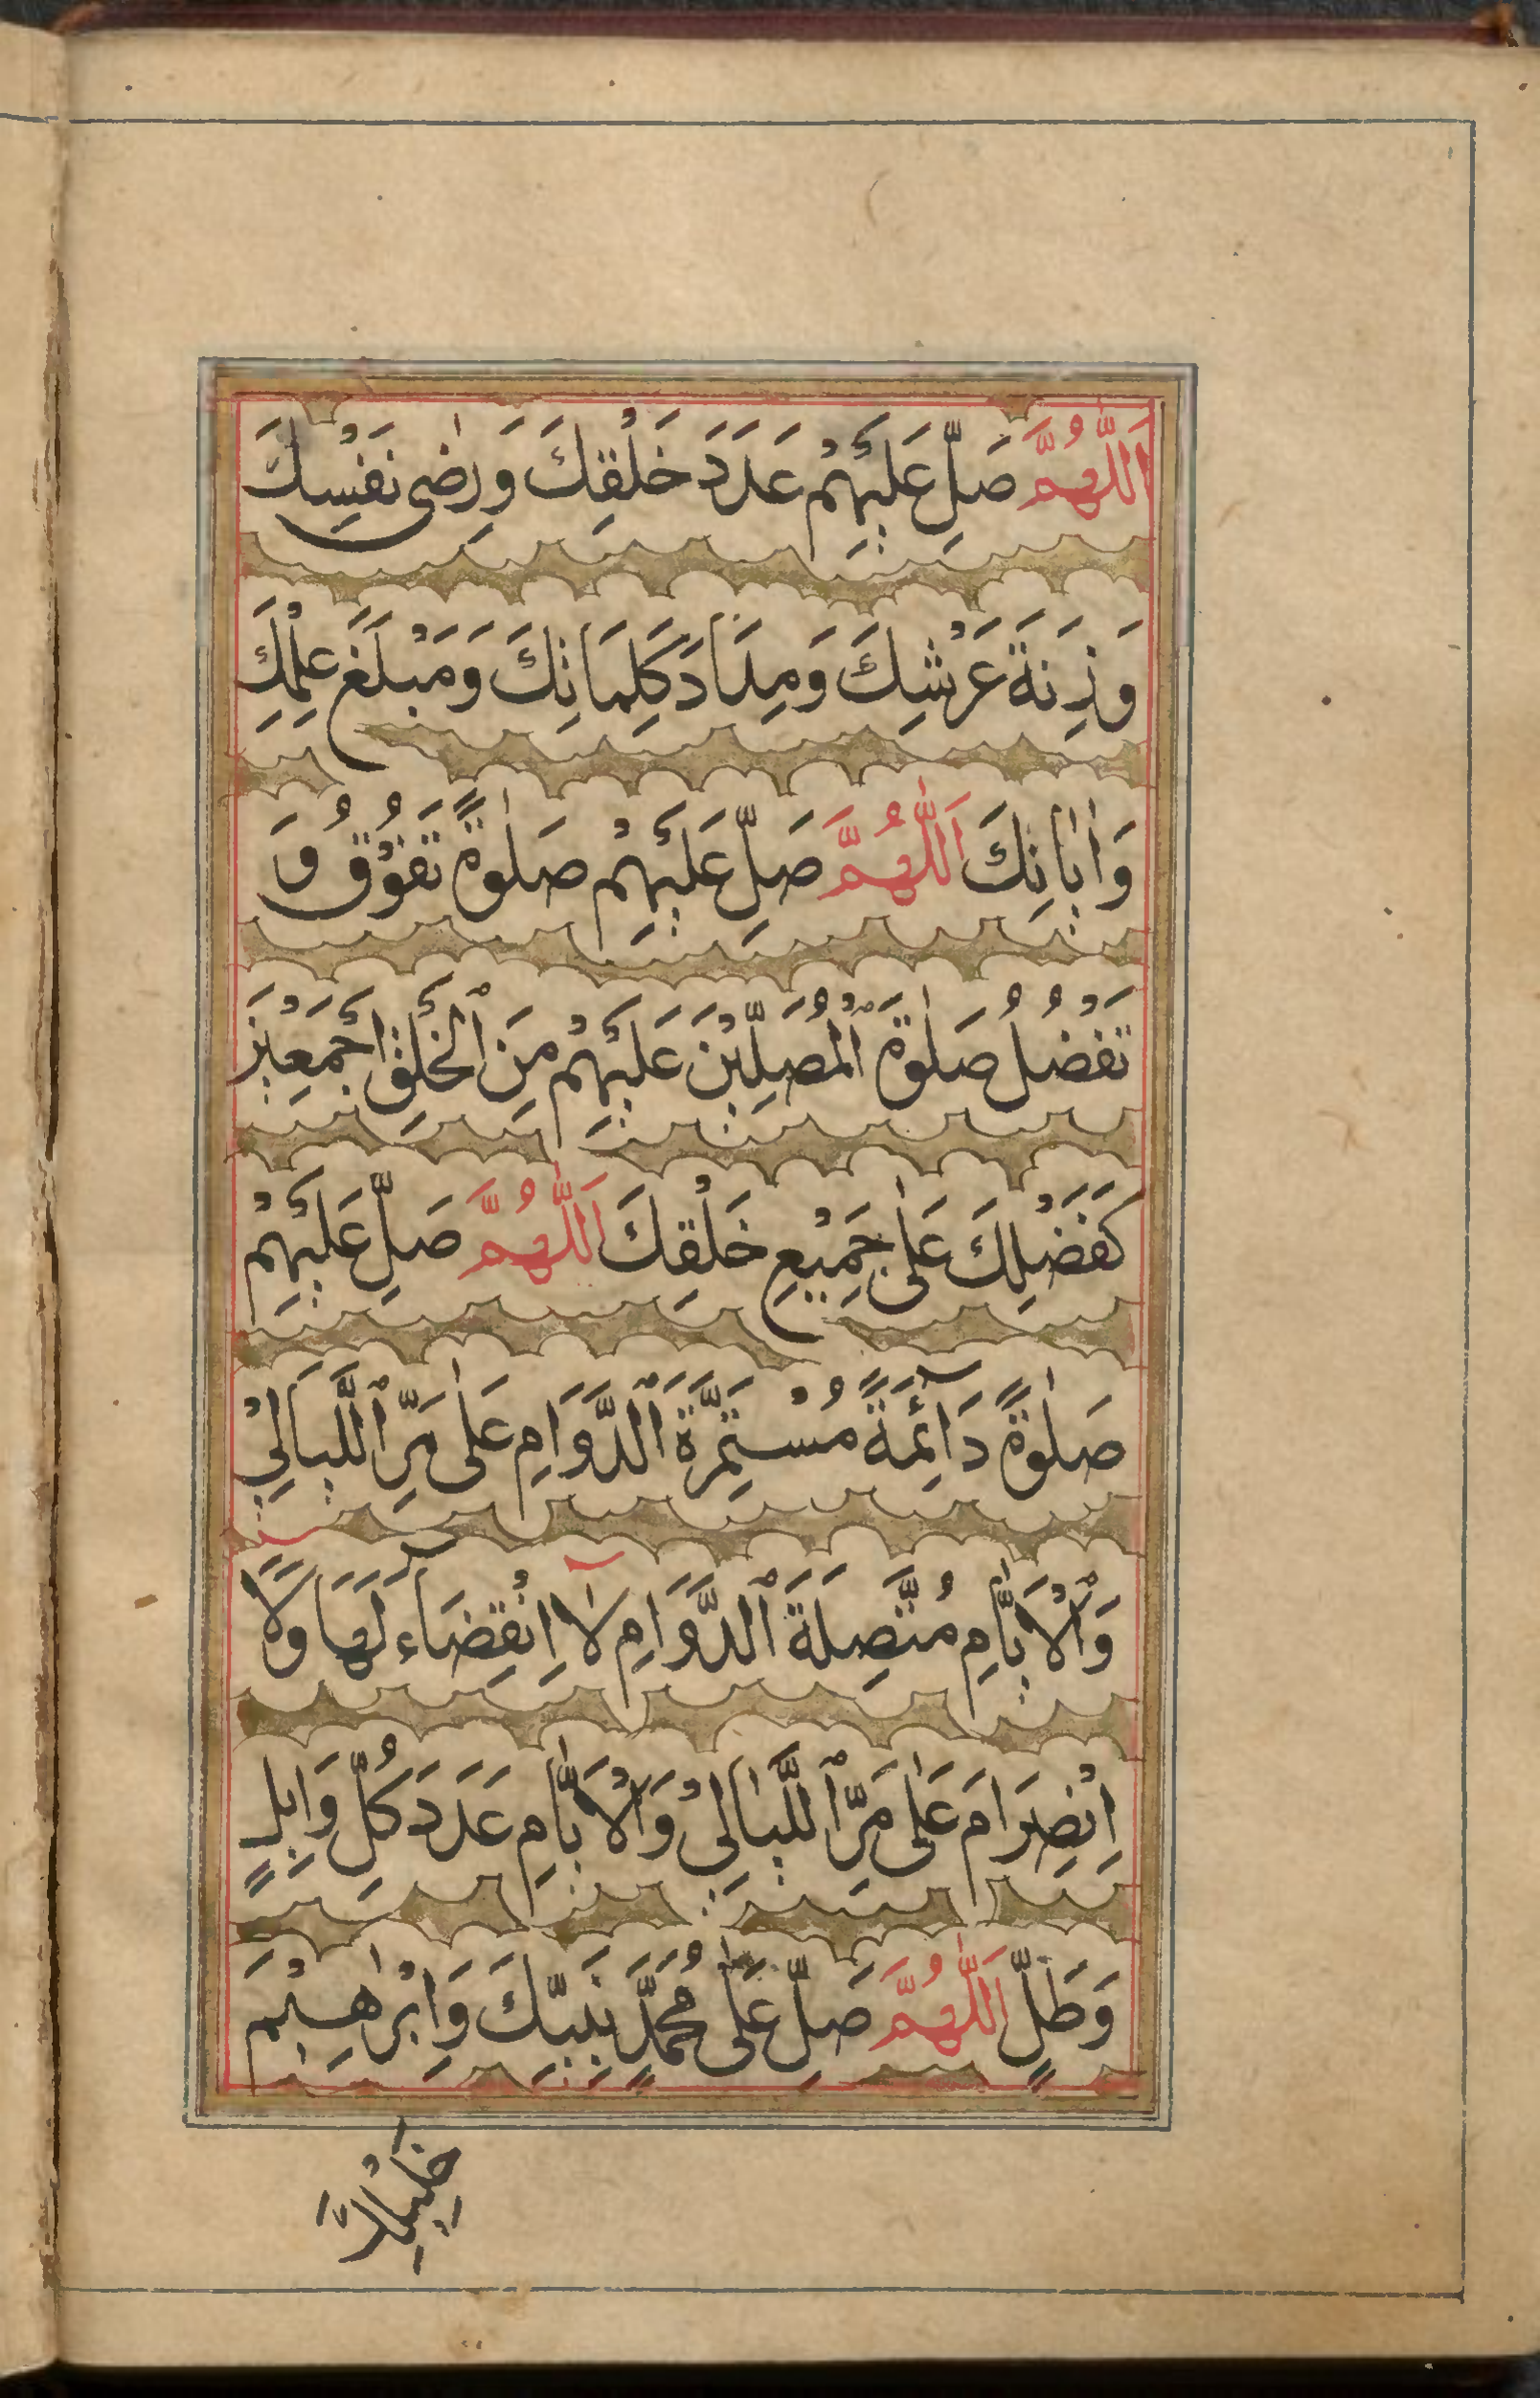 اَللّٰهُمَّ صَلِّ عَلَيْهِمْ عَدَدَ خَلْقِكَ وَرِضٰى نَفْسِكَ
وَزِنَةَ عَرْشِكَ وَمِدَادَ كَلِمَاتِكَ وَمَبْلَغَ عِلْمِكَ
وَاٰيَاتِكَ اَللّٰهُمَّ صَلِّ عَلَيْهِمْ صَلٰوةً تَفُوْقُ وَ
تَفْضُلُ صَلٰوةَ الْمُصَلِّيْنَ عَلَيْهِمْ مِنَ الْخَلْقِ اَجْمَعِيْنَ
كَفَضْلِكَ عَلٰى جَمِيْعِ خَلْقِكَ اَللّٰهُمَّ صَلِّ عَلَيْهِمْ
صَلٰوةً دَآئِمَةً مُسْتَمِرَّةَ الدَّوَامِ عَلٰى مَرِّ اللَّيَالِيْ
وَالْاَيَّامِ مُتَّصِلَةَ الدَّوَامِ لَا اِنْقِضَآءَ لَهَا وَلَا
اِنْصِرَامَ عَلٰى مَرِّ اللَّيَالِيْ وَالْاَيَّامِ عَدَدَ كُلِّ وَابِلٍ
وَطَلٍّ اَللّٰهُمَّ صَلِّ عَلٰى مُحَمَّدٍ نَبِيِّكَ وَاِبْرٰهِيْمَ
خَلِيْلِكَ